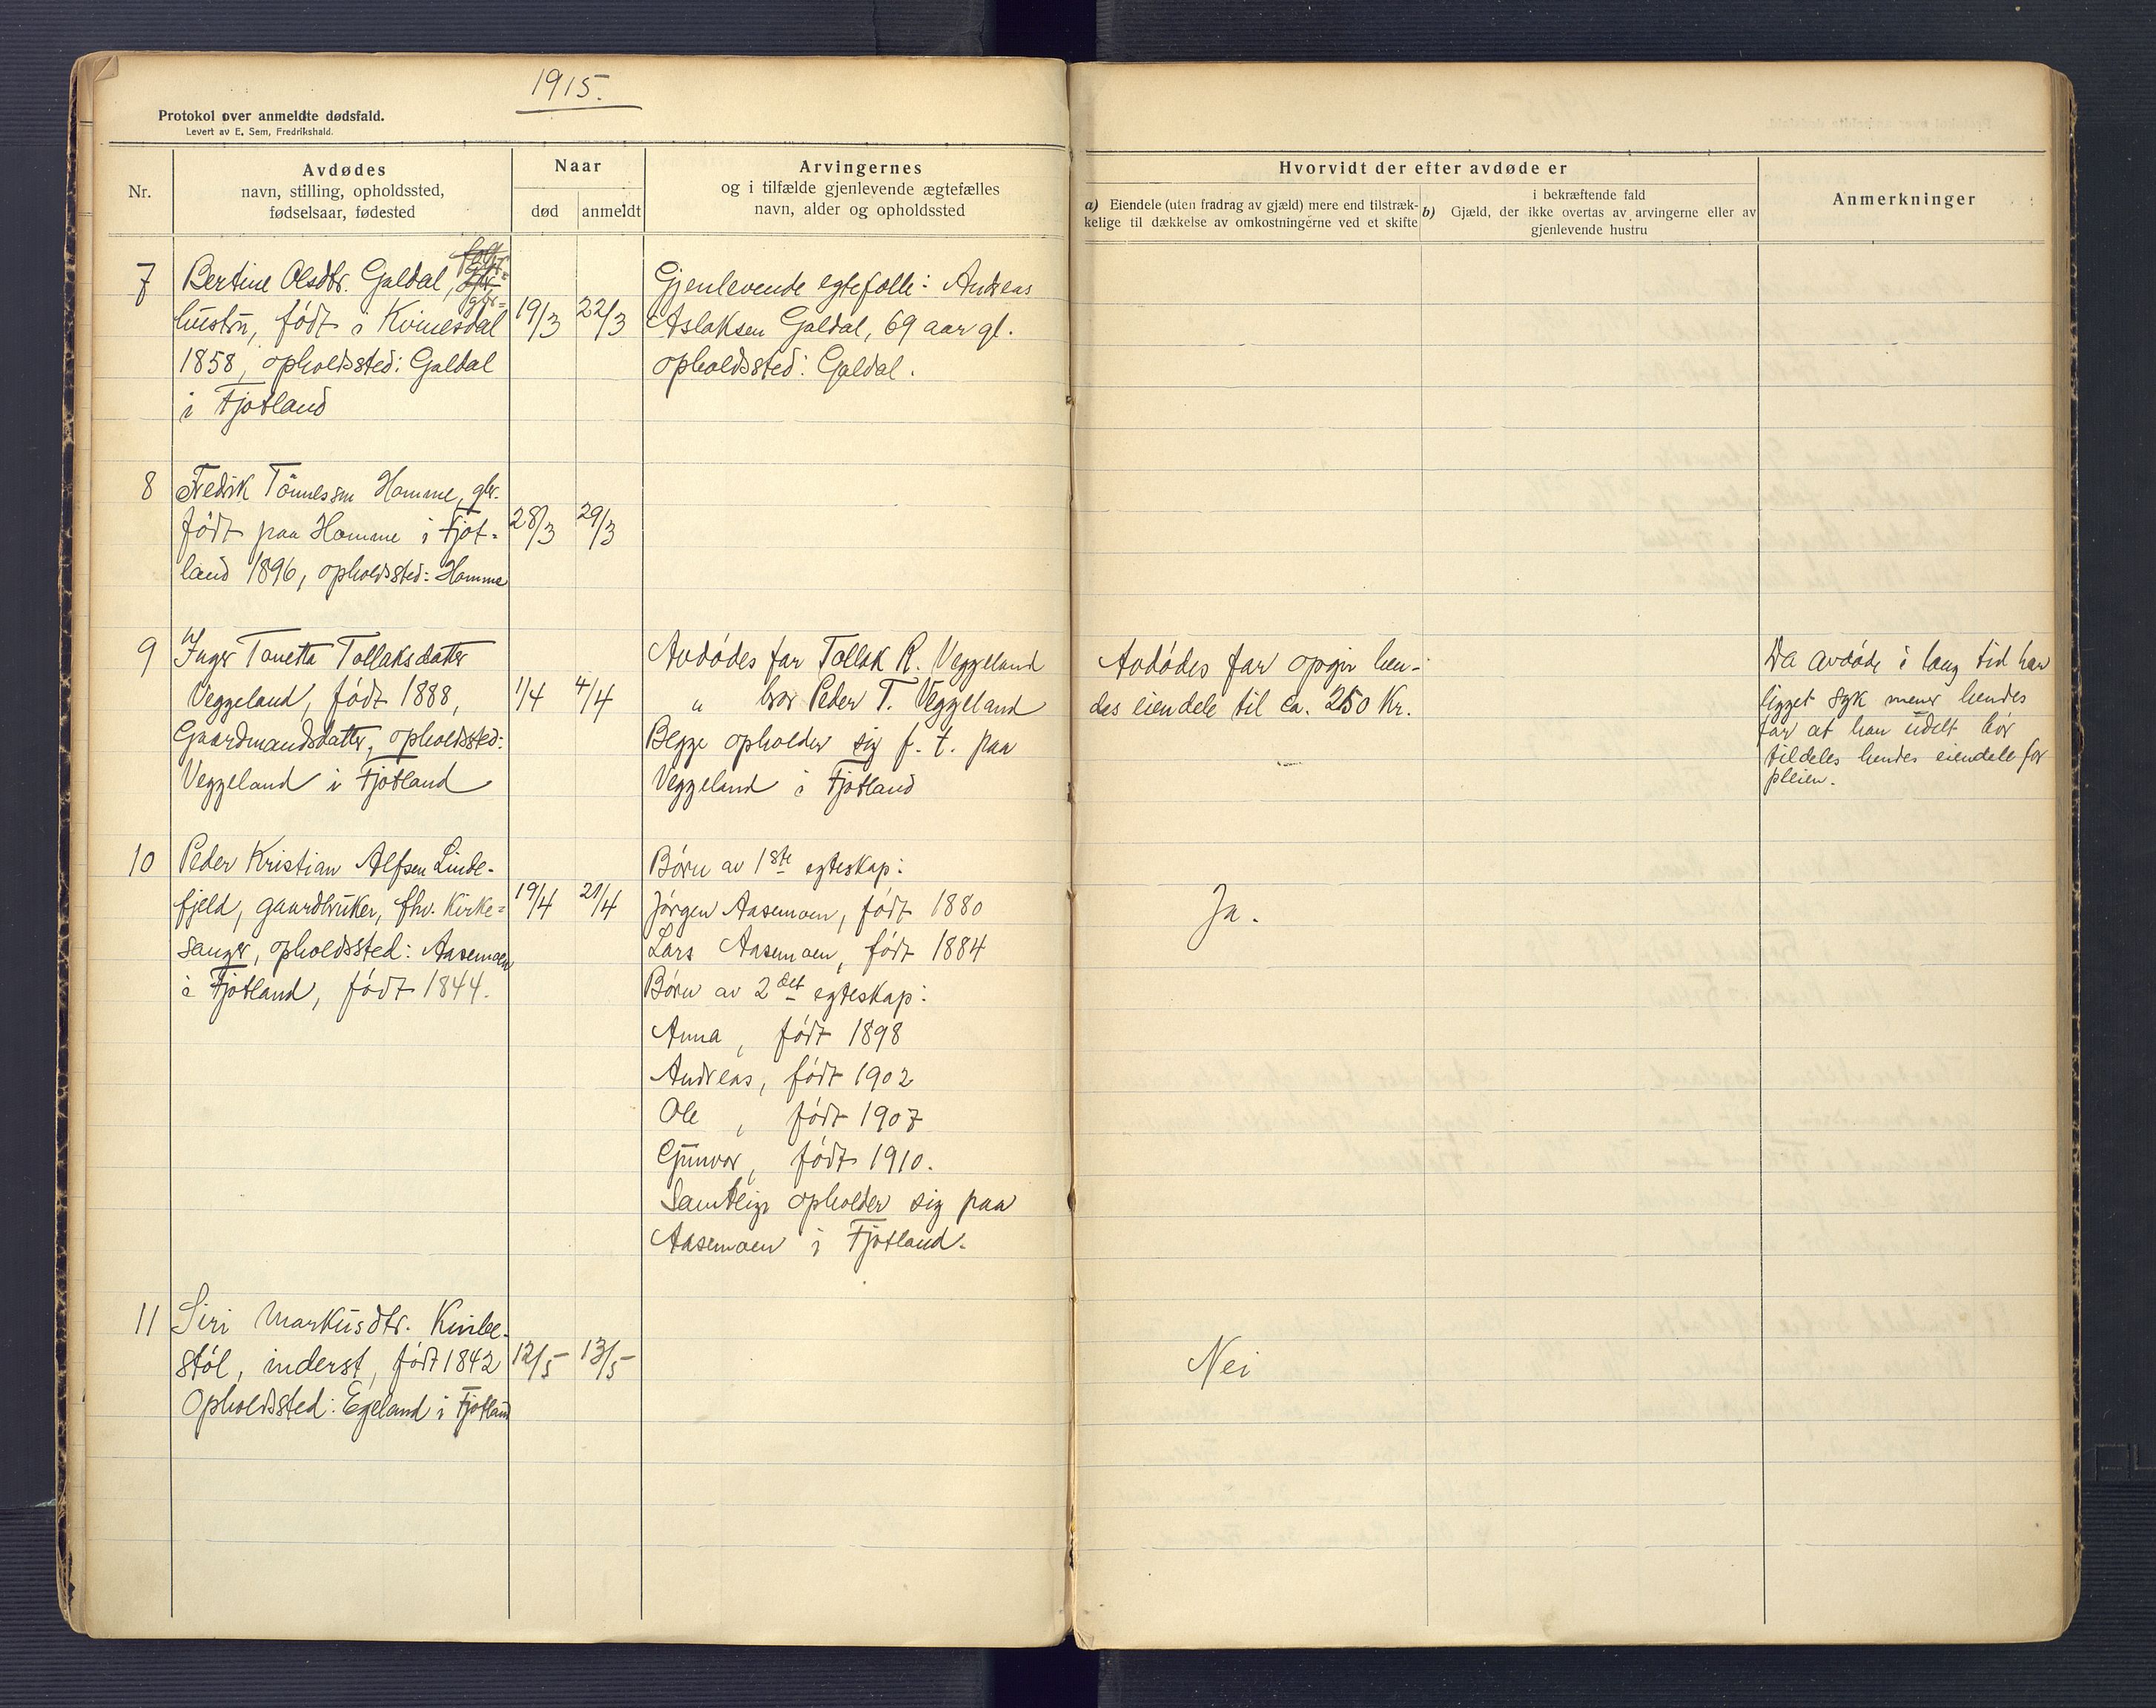 1915.
Protokol over anmeldte dødsfald.
Levert av E. Sem, Fredrikshald.
Nr.
Avdødes
navn, stilling, opholdssted,
fødselsaar, fødested
Naar
død
anmeldt
Arvingernes
og i tilfælde gjenlevende ægtefælles
navn, alder og opholdssted
Hvorvidt der efter avdøde er
a) Eiendele (uten fradrag av gjæld) mere end tilstræk-
kelige til dækkelse av omkostningerne ved et skifte
i bekræftende fald
b) Gjæld, der ikke overtas av arvingerne eller av
gjenlevende hustru
Anmerkninger
7
Bertine Olsdtr. Galdal, gbr=
hustru, født i Kvinesdal
1858, opholdssted: Galdal
i Fjotland
19/3
22/3
Gjenlevende egtefelle: Andreas
Aslaksen Galdal, 69 aar gl.
opholdssted: Galdal.
8
Fredrik Tönnessen Homme, gbr.
født paa Homme i Fjot-
land 1896, opholdssted: Homme
28/3
29/3
9
Inger Tonetta Tollaksdatter
Veggeland, født 1888,
Gaardmandsdatter, opholdssted:
Veggeland i Fjotland
1/4
4/4
Avdødes far Tollak R. Veggeland
" bror Peder T. Veggeland
Begge opholder sig f. t. paa
Veggeland i Fjotland
Avdødes far opgir hen-
des eiendele til ca. 250 Kr.
Da avdøde i lang tid har
ligget syk mener hendes
far at han udelt bör
tildeles hendes eiendele for
pleien.
10
Peder Kristian Alfsen Linde-
fjeld, gaardbruker, fhv. Kirke=
sanger, opholdssted: Aasemoen
i Fjotland, født 1844.
19/4
21/4
Børn av 1ste egteskap:
Jørgen Aasemoen, født 1880
Lars Aasemoen, født 1884
Børn av 2det egteskap:
Anna, født 1898
Andreas, født 1902
Ole, født 1907
Gunvor, født 1910.
Samtlige opholder sig paa
Aasemoen i Fjotland.
Ja.
11
Siri Markusdtr. Kvinle-
støl, inderst, født 1842
Opholdssted: Egeland i Fjotland
12/5
13/5
Nei